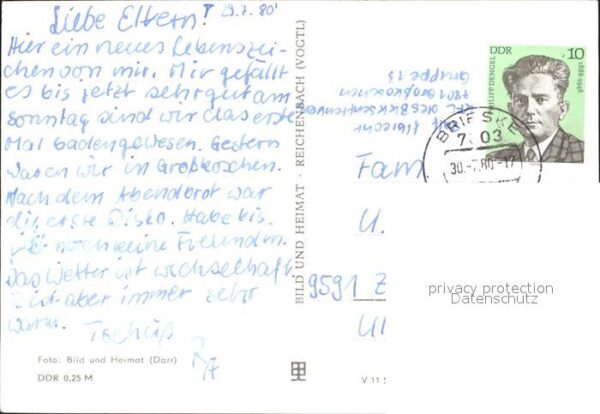 Liebe Eltern! 29.7.80'
Hier ein neues Lebenszei-
chen von mir. Mir gefällt
es bis jetzt sehr gut am
Sonntag sind wir das erste
Mal baden gewesen. Gestern
waren wir in Großkoschen.
Nach dem Abendbrot war
die erste Disko. Habe bis
noch keine Freundin.
Das Wetter ist wechselhaft
ist aber immer sehr
warm. Tschüß
Foto: Bild und Heimat (Darr)
DDR 0,25 M
BILD UND HEIMAT · REICHENBACH (VOGTL)
V 11 5
7801 Großkoschen
Gruppe 13
DDR 10
PHILIPP DENGEL 1888-1948
BRIESKE
7803
30.-7.80-17
Fam
U.
9591 Z
Ul
privacy protection
Datenschutz